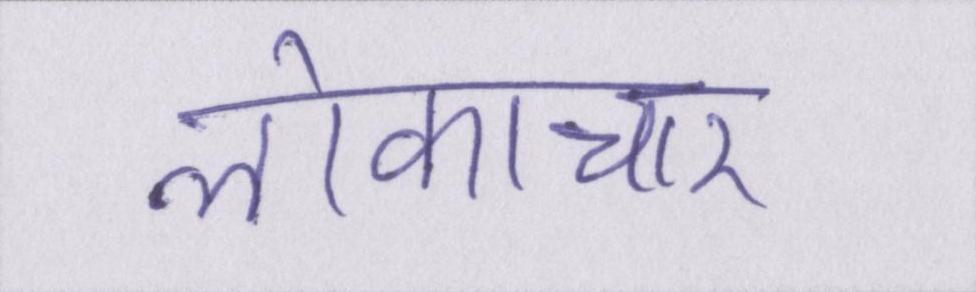 लोकाचार